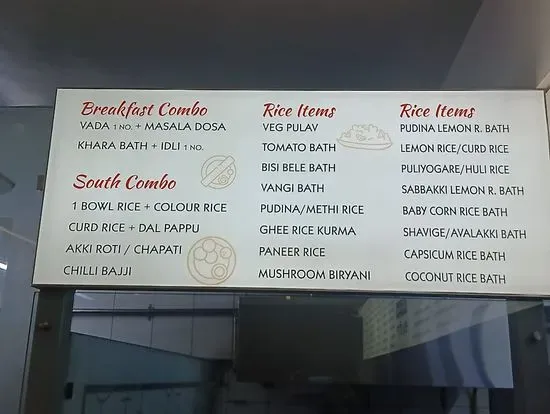 Breakfast Combo
VADA 1 NO. + MASALA DOSA
KHARA BATH + IDLI 1 NO.
South Combo
1 BOWL RICE + COLOUR RICE
CURD RICE + DAL PAPPU
AKKI ROTI / CHAPATI
CHILLI BAJJI
Rice Items
VEG PULAV
TOMATO BATH
BISI BELE BATH
VANGI BATH
PUDINA/METHI RICE
GHEE RICE KURMA
PANEER RICE
MUSHROOM BIRYANI
Rice Items
PUDINA LEMON R. BATH
LEMON RICE/CURD RICE
PULIYOGARE/HULI RICE
SABBAKKI LEMON R. BATH
BABY CORN RICE BATH
SHAVIGE/AVALAKKI BATH
CAPSICUM RICE BATH
COCONUT RICE BATH